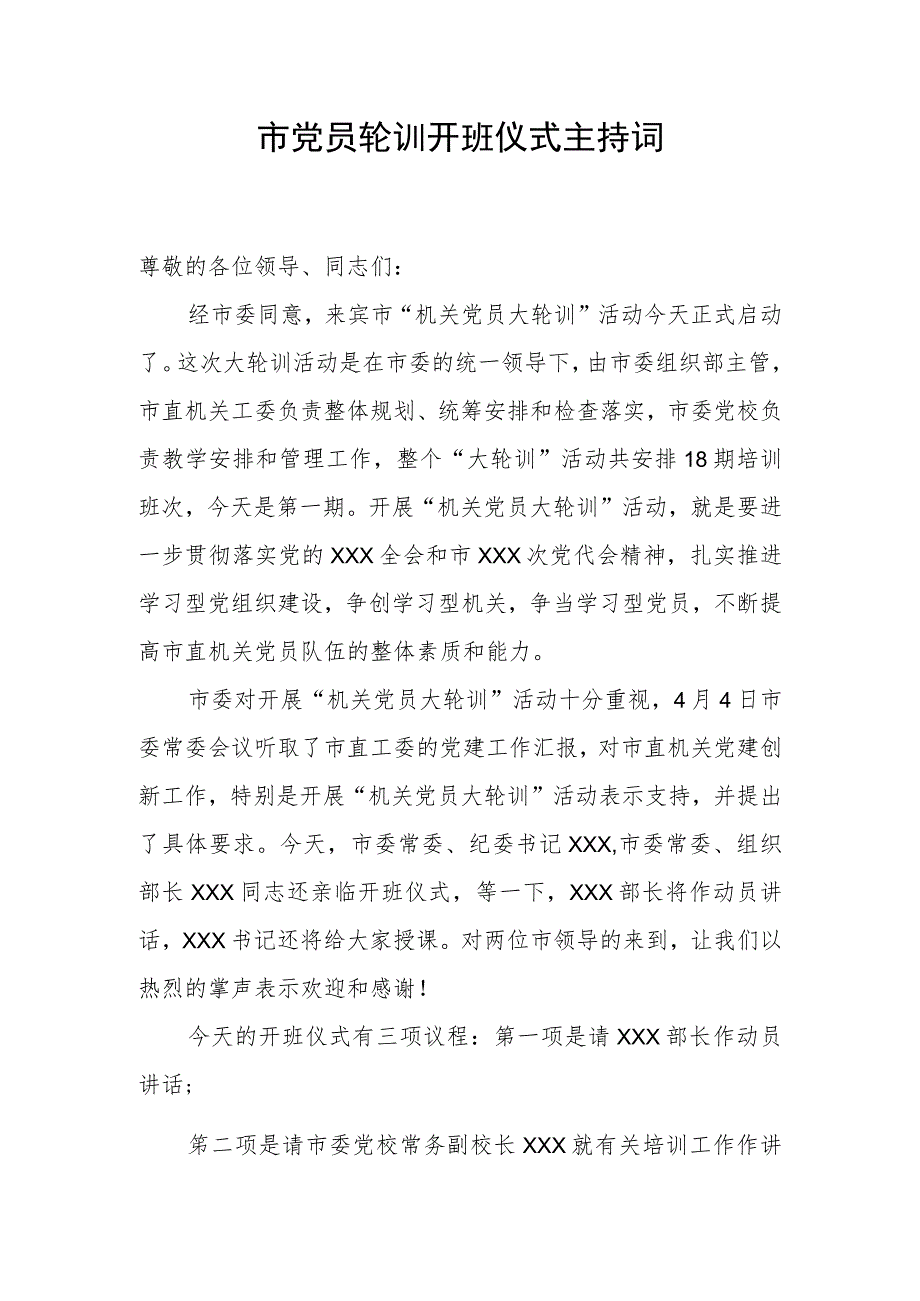 市党员轮训开班仪式主持词
尊敬的各位领导、同志们：
经市委同意，来宾市“机关党员大轮训”活动今天正式启动
了。这次大轮训活动是在市委的统一领导下，由市委组织部主管，
市直机关工委负责整体规划、统筹安排和检查落实，市委党校负
责教学安排和管理工作，整个“大轮训”活动共安排 18 期培训
班次，今天是第一期。开展“机关党员大轮训”活动，就是要进
一步贯彻落实党的 XXX 全会和市 XXX 次党代会精神，扎实推进
学习型党组织建设，争创学习型机关，争当学习型党员，不断提
高市直机关党员队伍的整体素质和能力。
市委对开展“机关党员大轮训”活动十分重视，4 月 4 日市
委常委会议听取了市直工委的党建工作汇报，对市直机关党建创
新工作，特别是开展“机关党员大轮训”活动表示支持，并提出
了具体要求。今天，市委常委、纪委书记 XXX,市委常委、组织
部长 XXX 同志还亲临开班仪式，等一下，XXX 部长将作动员讲
话，XXX 书记还将给大家授课。对两位市领导的来到，让我们以
热烈的掌声表示欢迎和感谢！
今天的开班仪式有三项议程：第一项是请 XXX 部长作动员
讲话；
第二项是请市委党校常务副校长 XXX 就有关培训工作作讲